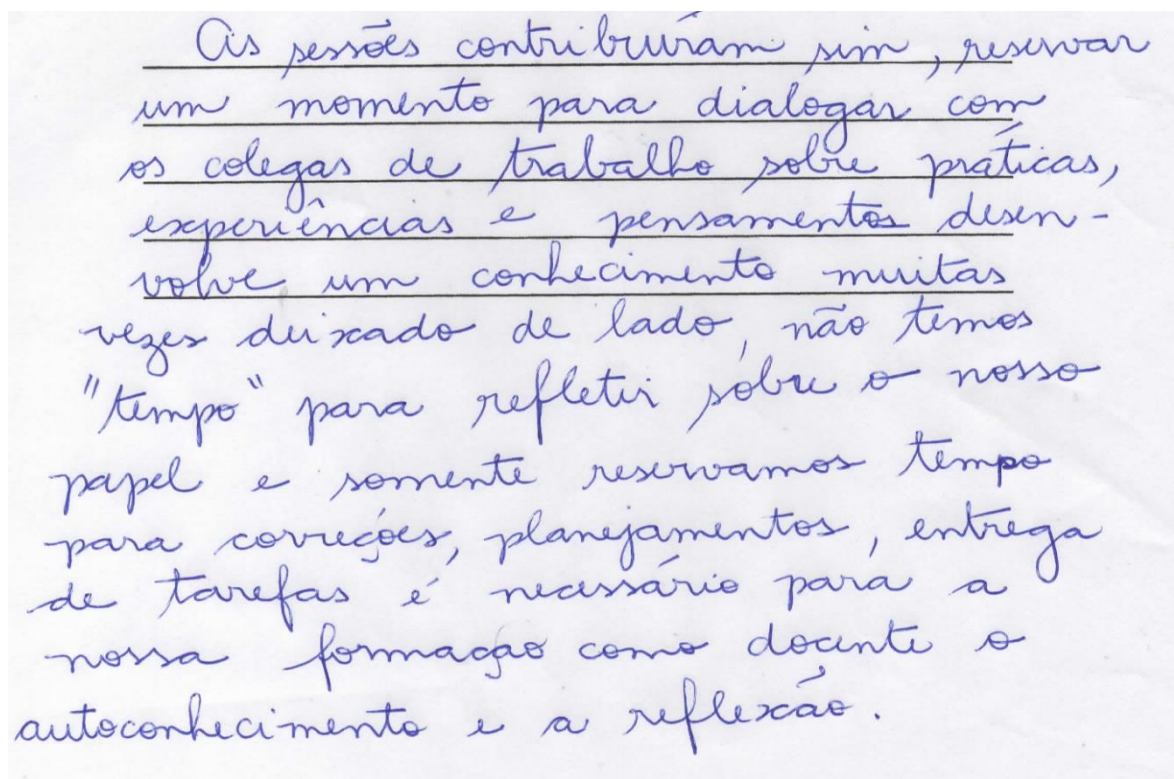 As sessões contribuíram sim, reservar
um momento para dialogar com
os colegas de trabalho sobre práticas,
experiências e pensamentos desen-
volve um conhecimento muitas
vezes deixado de lado, não temos
"tempo" para refletir sobre o nosso
papel e somente reservamos tempo
para correções, planejamentos, entrega
de tarefas é necessário para a
nossa formação como docente o
autoconhecimento e a reflexão.